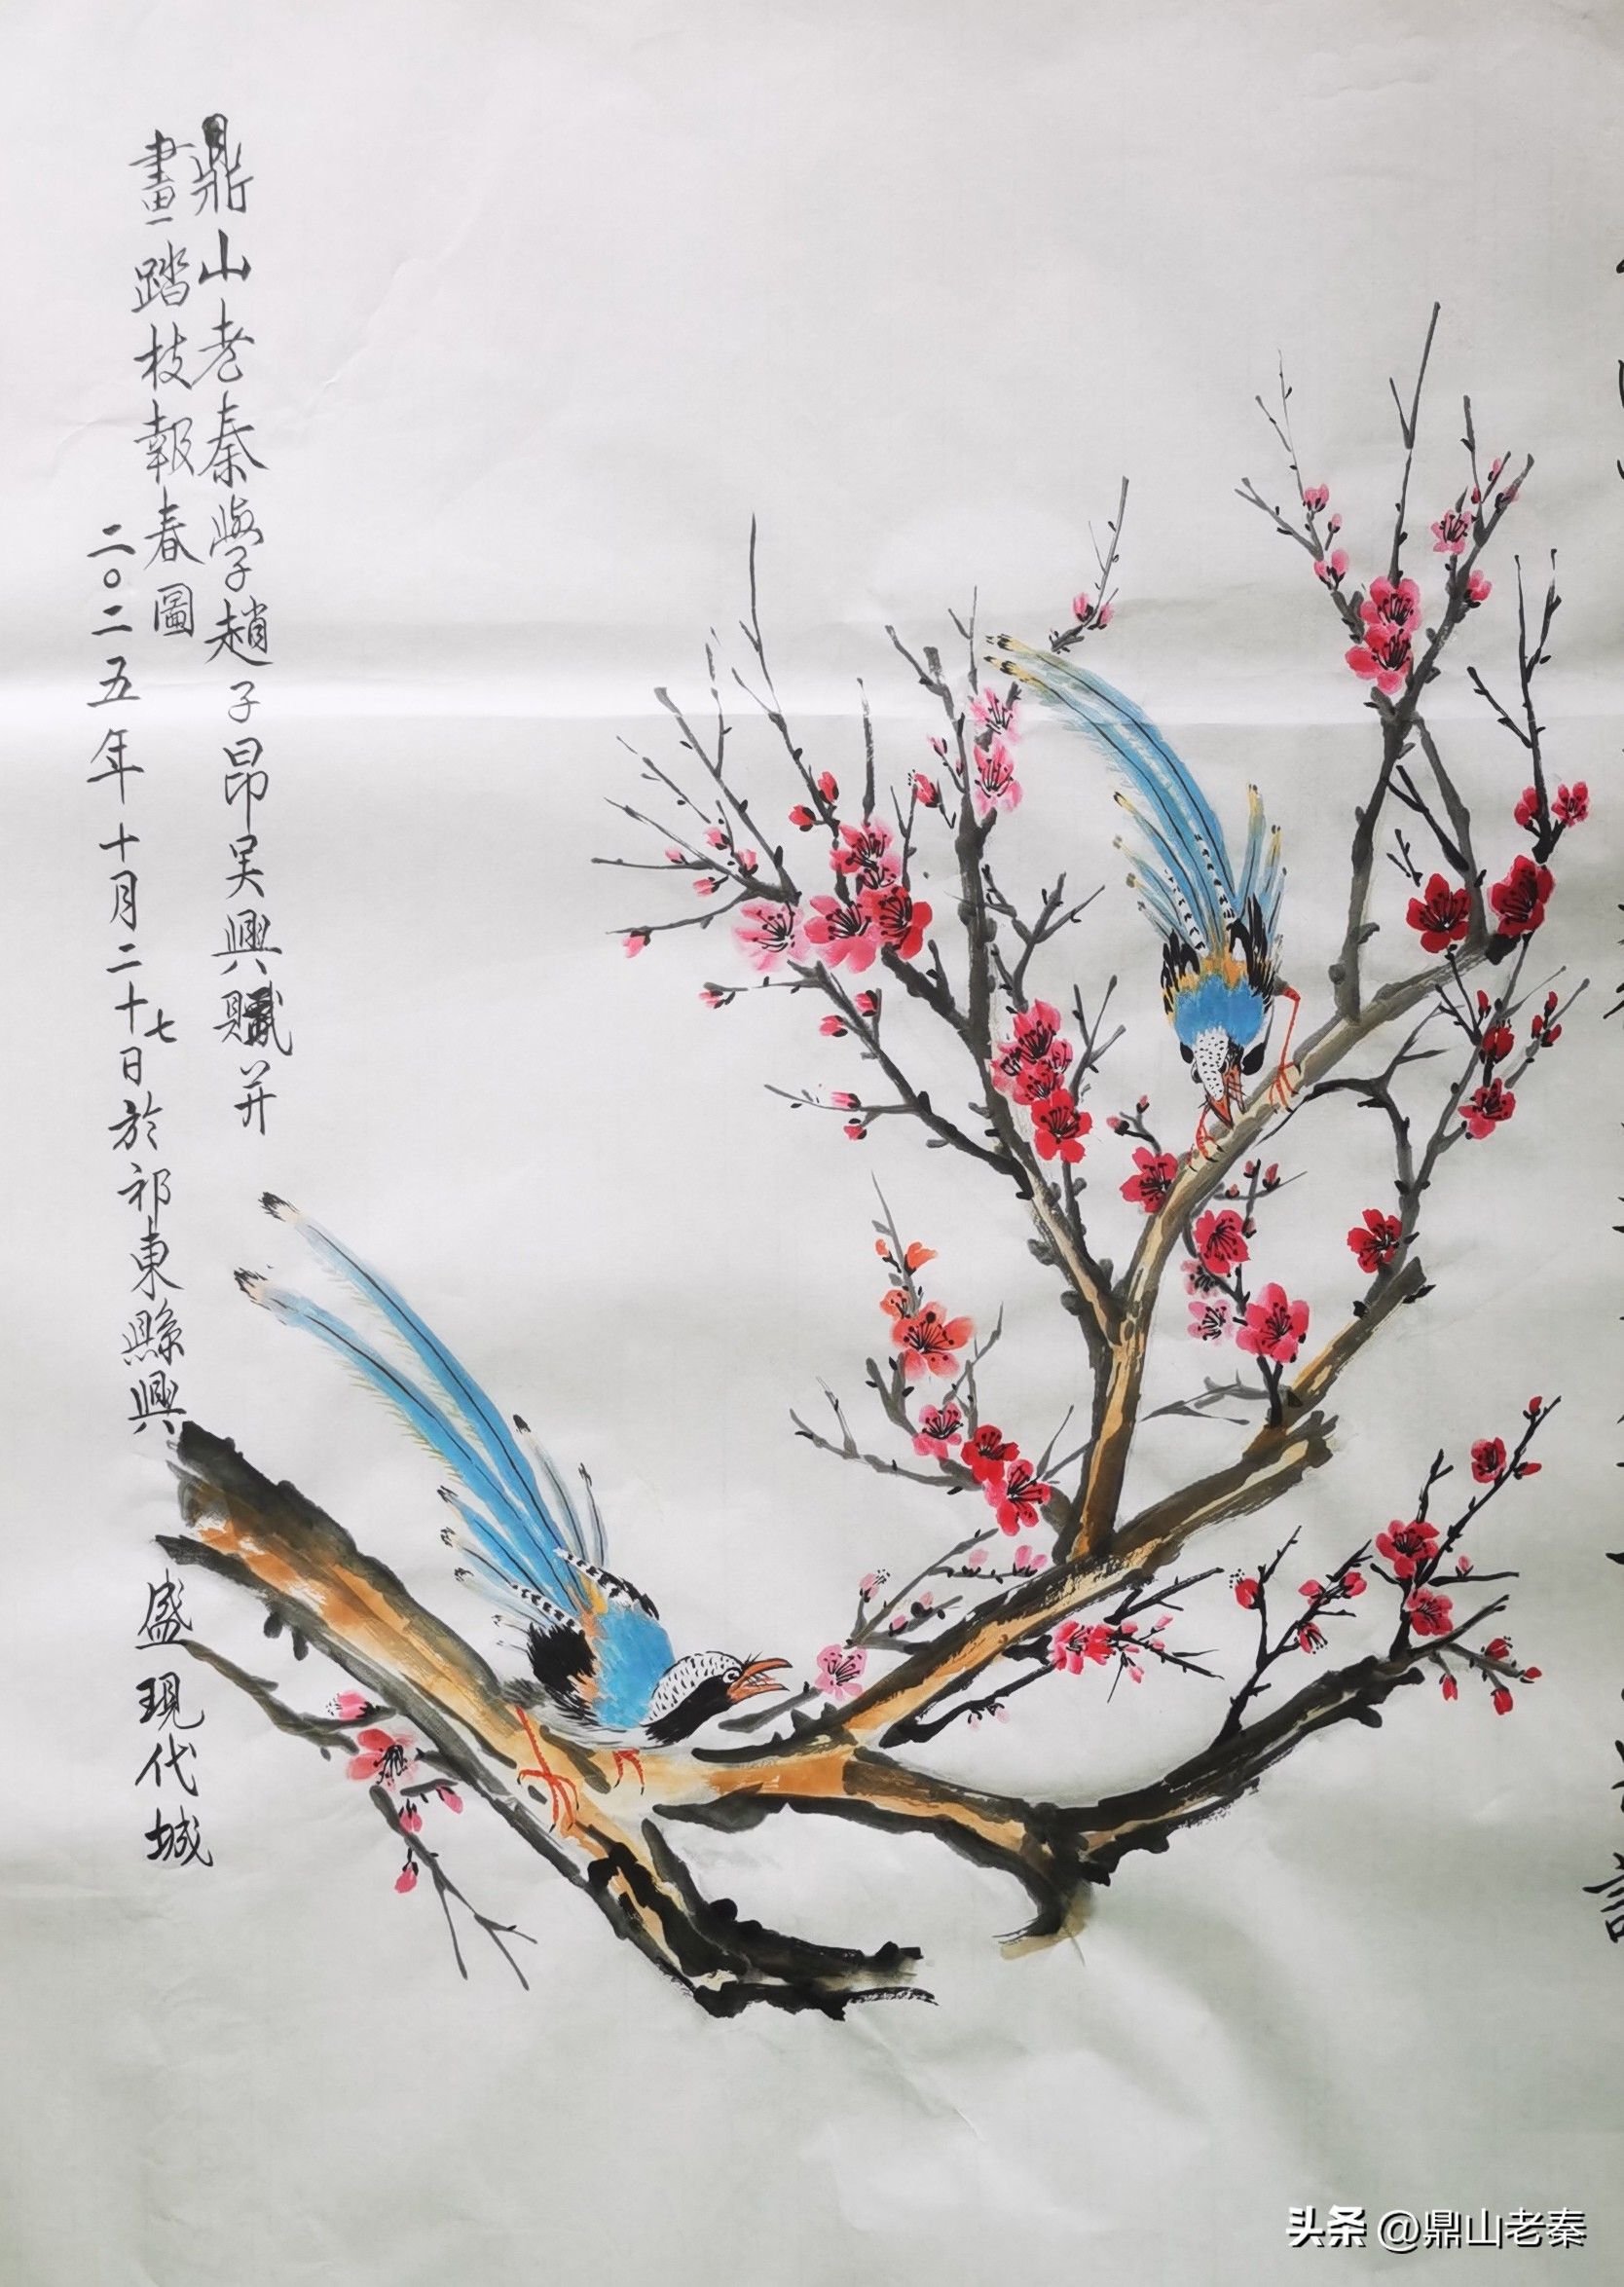 鼎山老秦學趙子昂吴興賦并
畫踏枝報春圖
二〇二五年十月二十七日於祁東縣興盛現代城
头条 @鼎山老秦